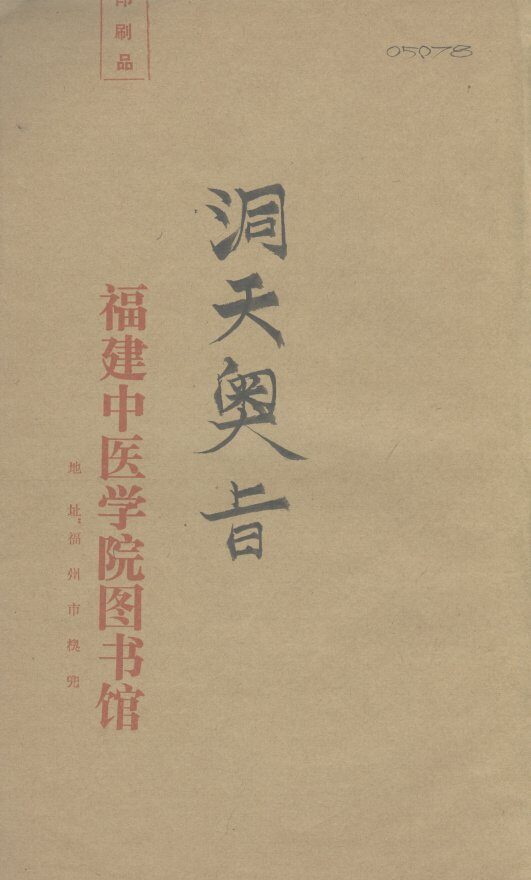 印刷品
05078
洞天奥旨
福建中医学院图书馆
地址：福州市